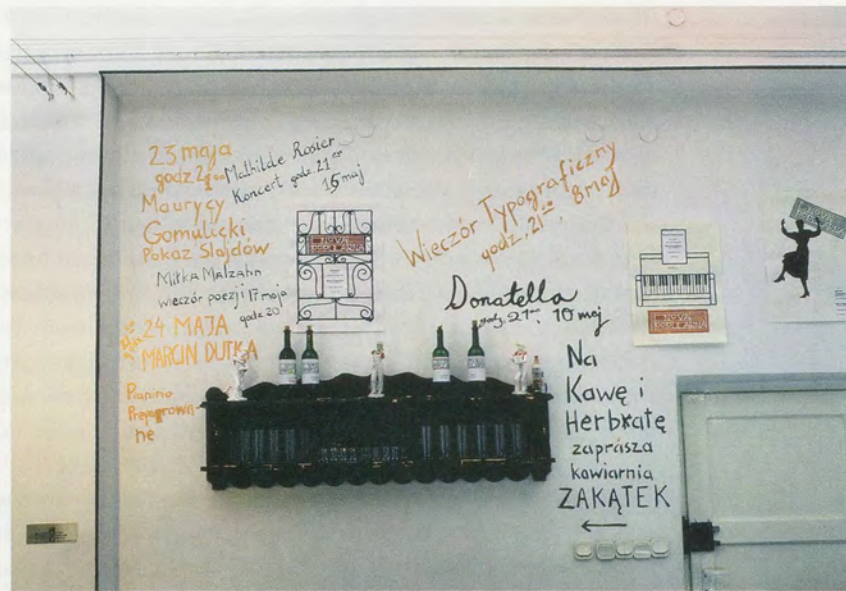 23 maja
godz 21 00
Maurycy
Gomulicki
Pokaz Slajdów
Mathilde Rosier
Koncert godz. 21 00
15 maj
Miłka Malzahn
wieczór poezji 17 maja
godz 20
24 MAJA
MARCIN DUTKA
Pianino
NOVA
POPULARNA
Wieczór Typograficzny
godz. 21 00, 8 maj
Donatella
godz. 21 00, 10 maj
NOVA
POPULARNA
NOVA
POPULARNA
Na
Kawę i
Herbatę
zaprasza
kawiarnia
ZAKĄTEK